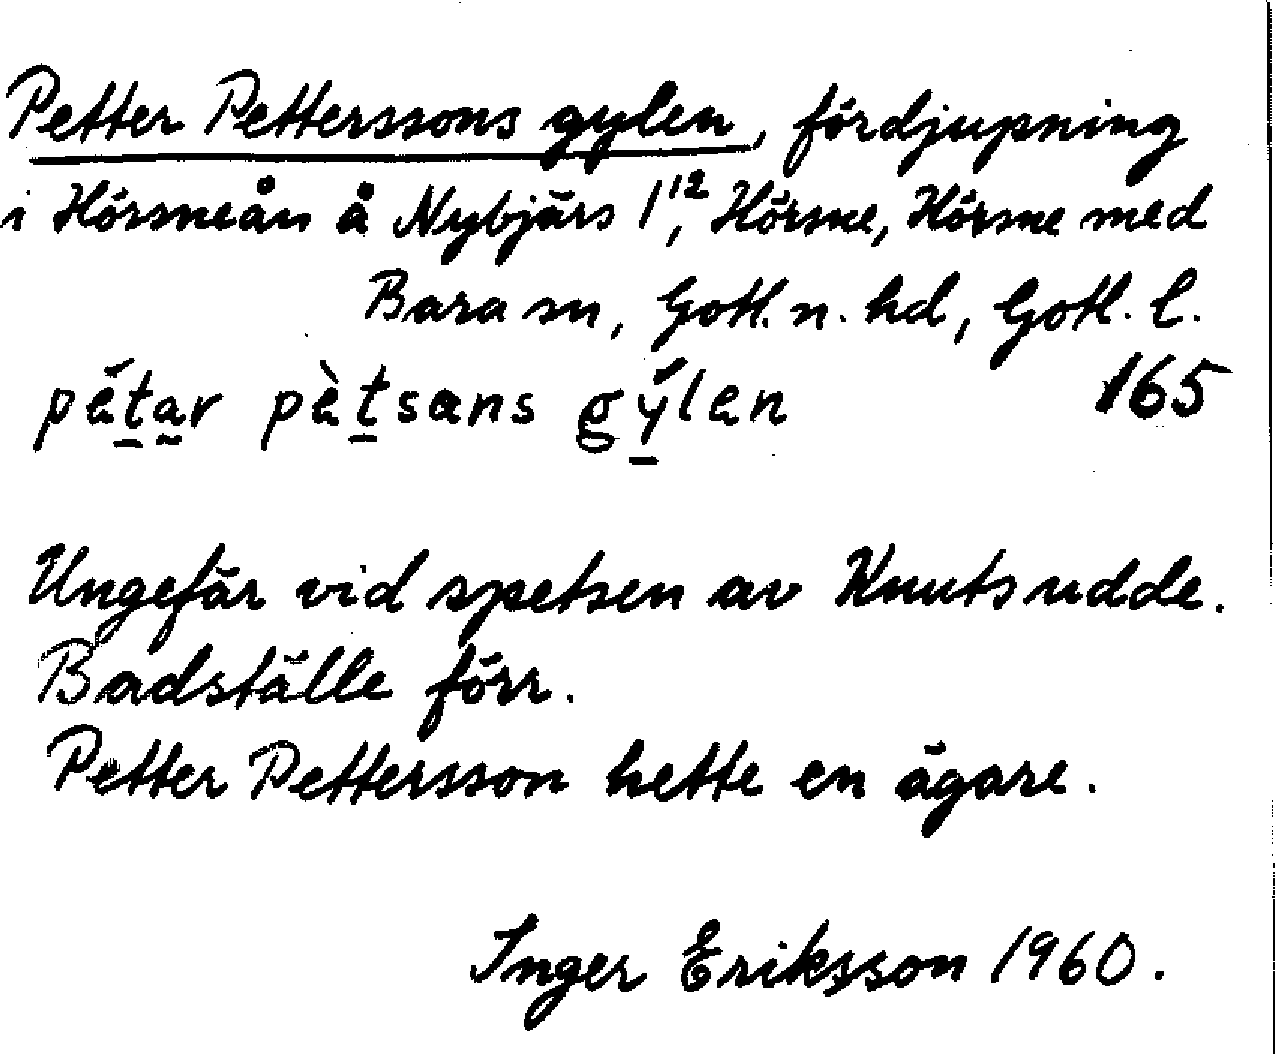 Petter Petterssons gylen, fördjupning
i Hörsneån å Nybjärs 1¹², Hörsne, Hörsne med
Bara sn, Gotl. n. hd, Gotl. l.
pétar pètsæns gýlen 165
Ungefär vid spetsen av Knutsudde.
Badställe förr.
Petter Pettersson hette en ägare.
Inger Eriksson 1960.